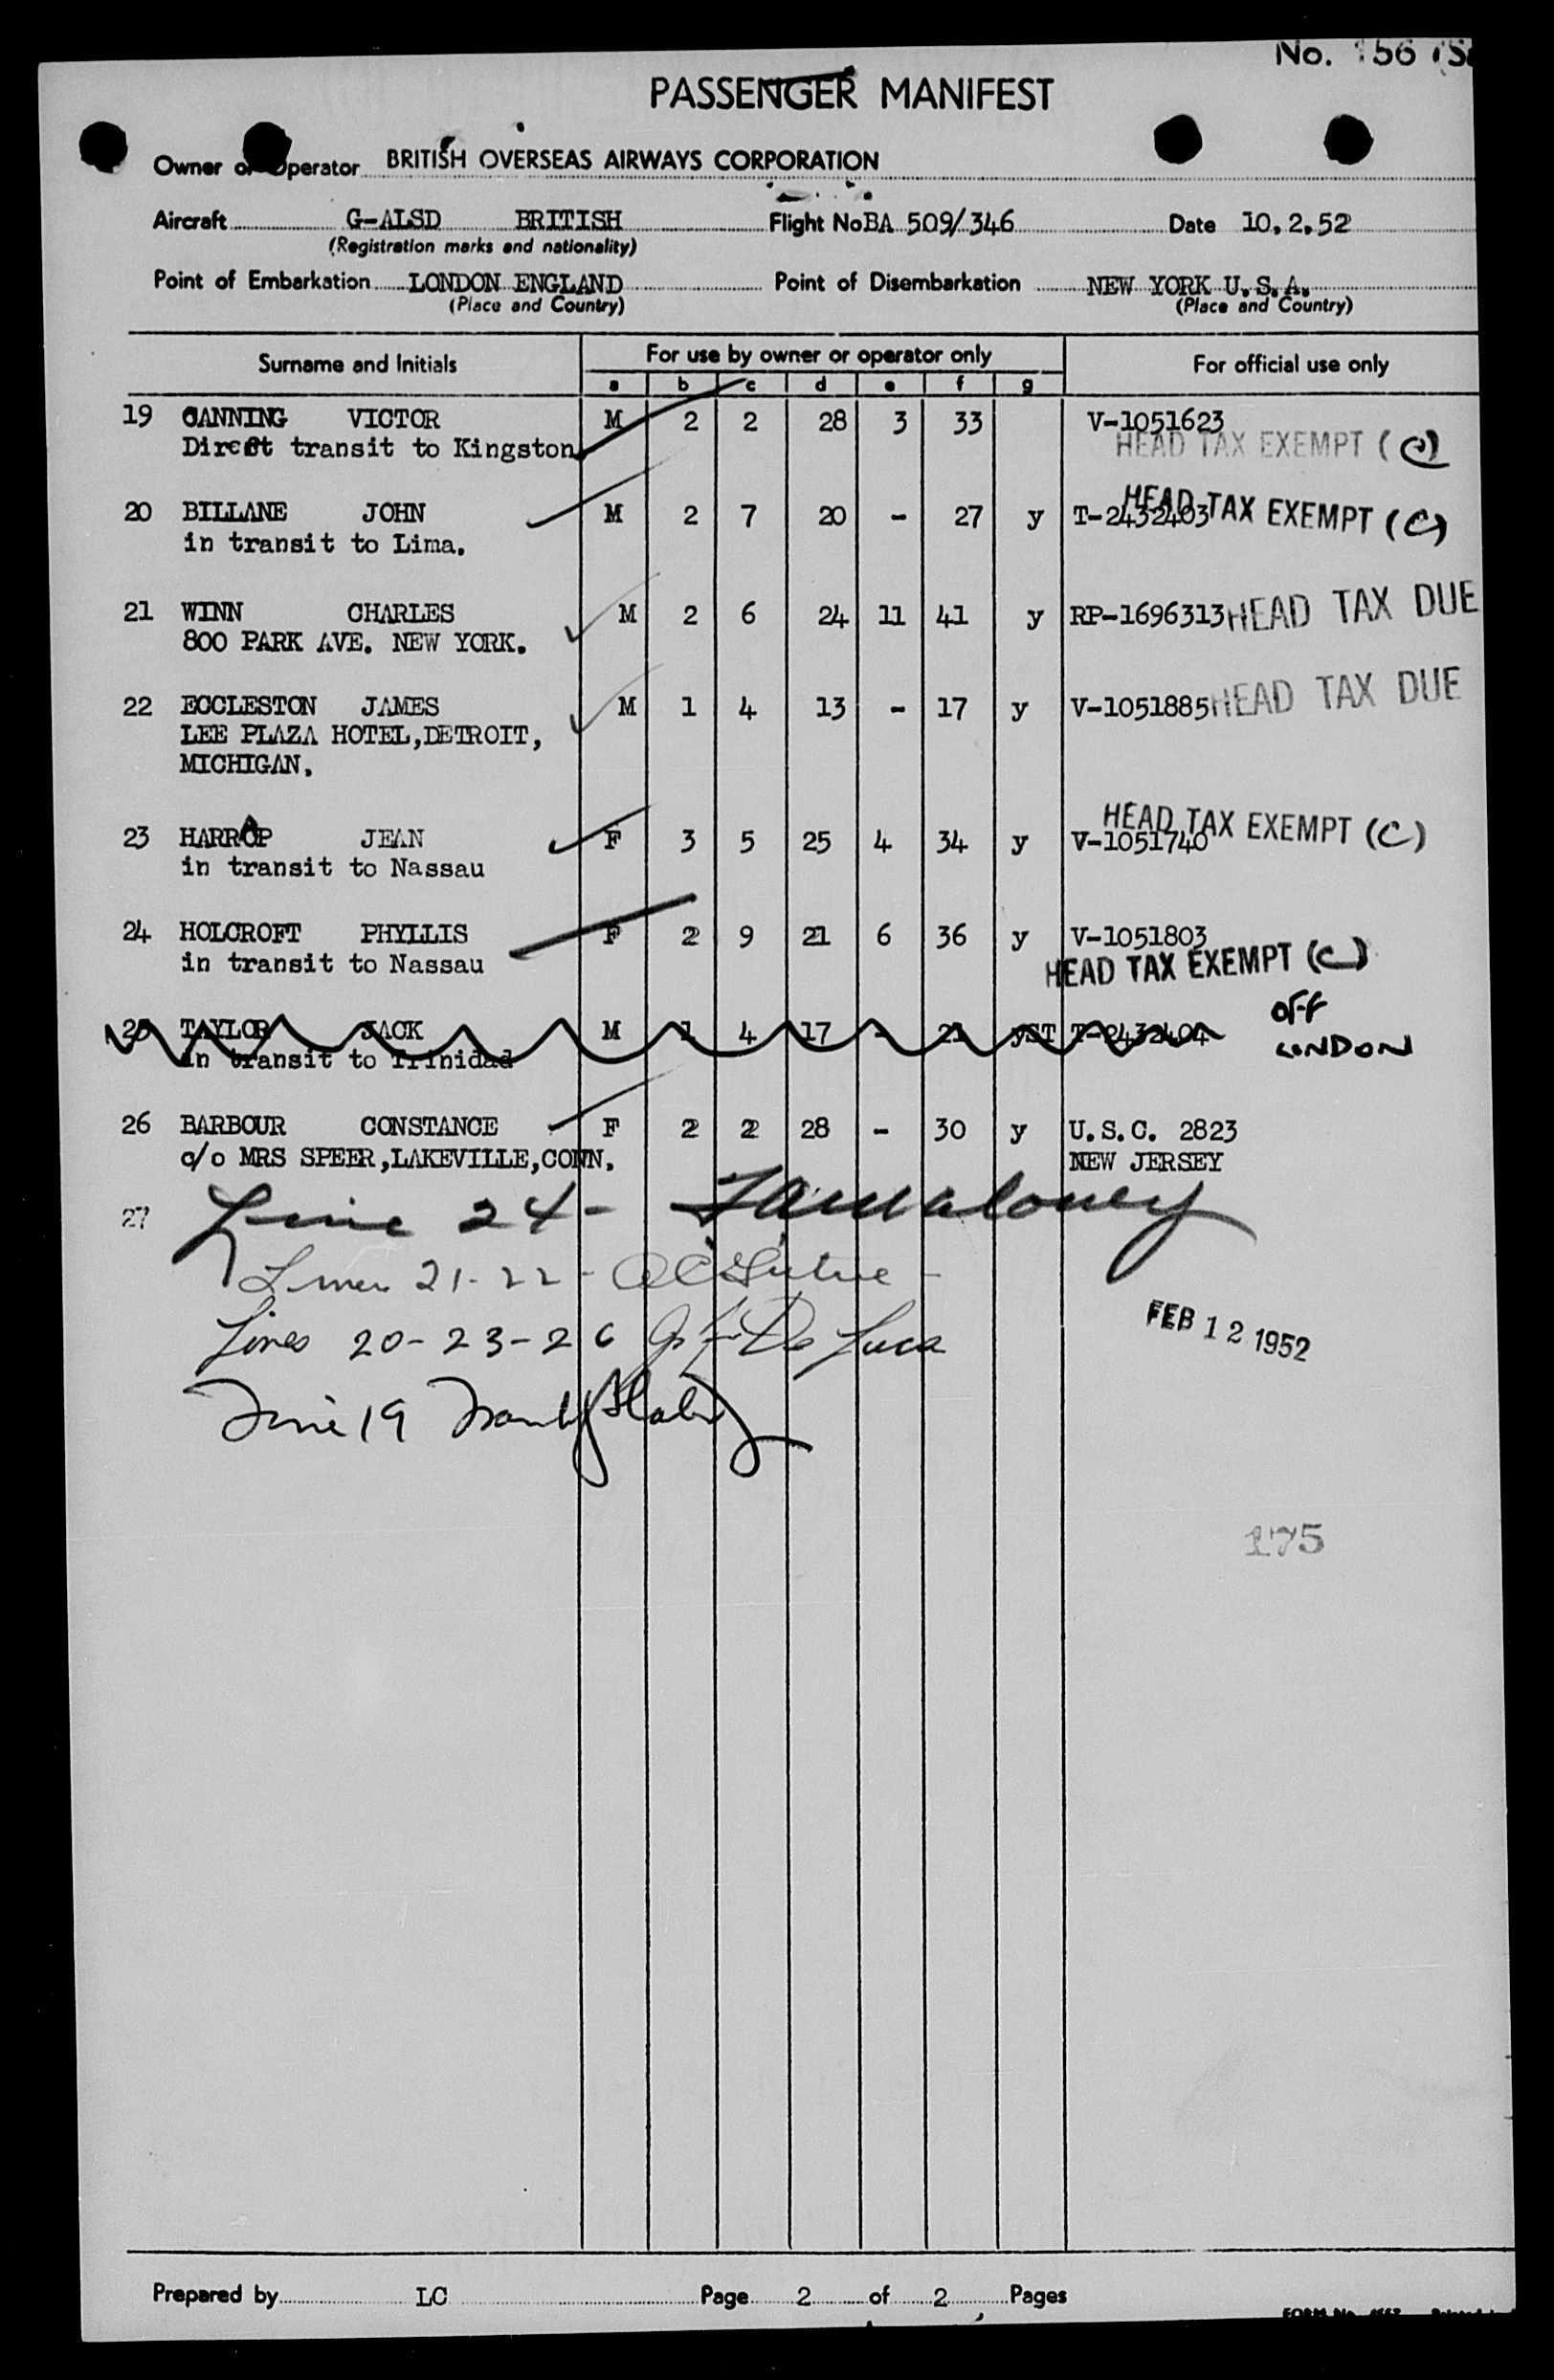 No. 156
PASSENGER MANIFEST
Owner or Operator BRITISH OVERSEAS AIRWAYS CORPORATION
Aircraft G-ALSD BRITISH Flight No BA 509/346 Date 10.2.52
(Registration marks and nationality)
Point of Embarkation LONDON ENGLAND Point of Disembarkation NEW YORK U.S.A.
(Place and Country) (Place and Country)
Surname and Initials For use by owner or operator only For official use only
a b c d e f g
19 CANNING VICTOR M 2 2 28 3 33 V-1051623
Direct transit to Kingston HEAD TAX EXEMPT (C)
20 BILLANE JOHN M 2 7 20 - 27 y T-2432403 HEAD TAX EXEMPT (C)
in transit to Lima.
21 WINN CHARLES M 2 6 24 11 41 y RP-1696313 HEAD TAX DUE
800 PARK AVE. NEW YORK.
22 ECCLESTON JAMES M 1 4 13 - 17 y V-1051885 HEAD TAX DUE
LEE PLAZA HOTEL,DETROIT,
MICHIGAN.
HEAD TAX EXEMPT (C)
23 HARROP JEAN F 3 5 25 4 34 y V-1051740
in transit to Nassau
24 HOLCROFT PHYLLIS F 2 9 21 6 36 y V-1051803
in transit to Nassau HEAD TAX EXEMPT (C)
25 TAYLOR JACK M 1 4 17 - 21 yST T-2432404 OFF
in transit to Trinidad LONDON
26 BARBOUR CONSTANCE F 2 2 28 - 30 y U.S.C. 2823
c/o MRS SPEER,LAKEVILLE,CONN. NEW JERSEY
27 Line 24 -
Lines 21-22 -
Lines 20-23-26 De Luca
FEB 12 1952
Line 19
175
Prepared by LC Page 2 of 2 Pages